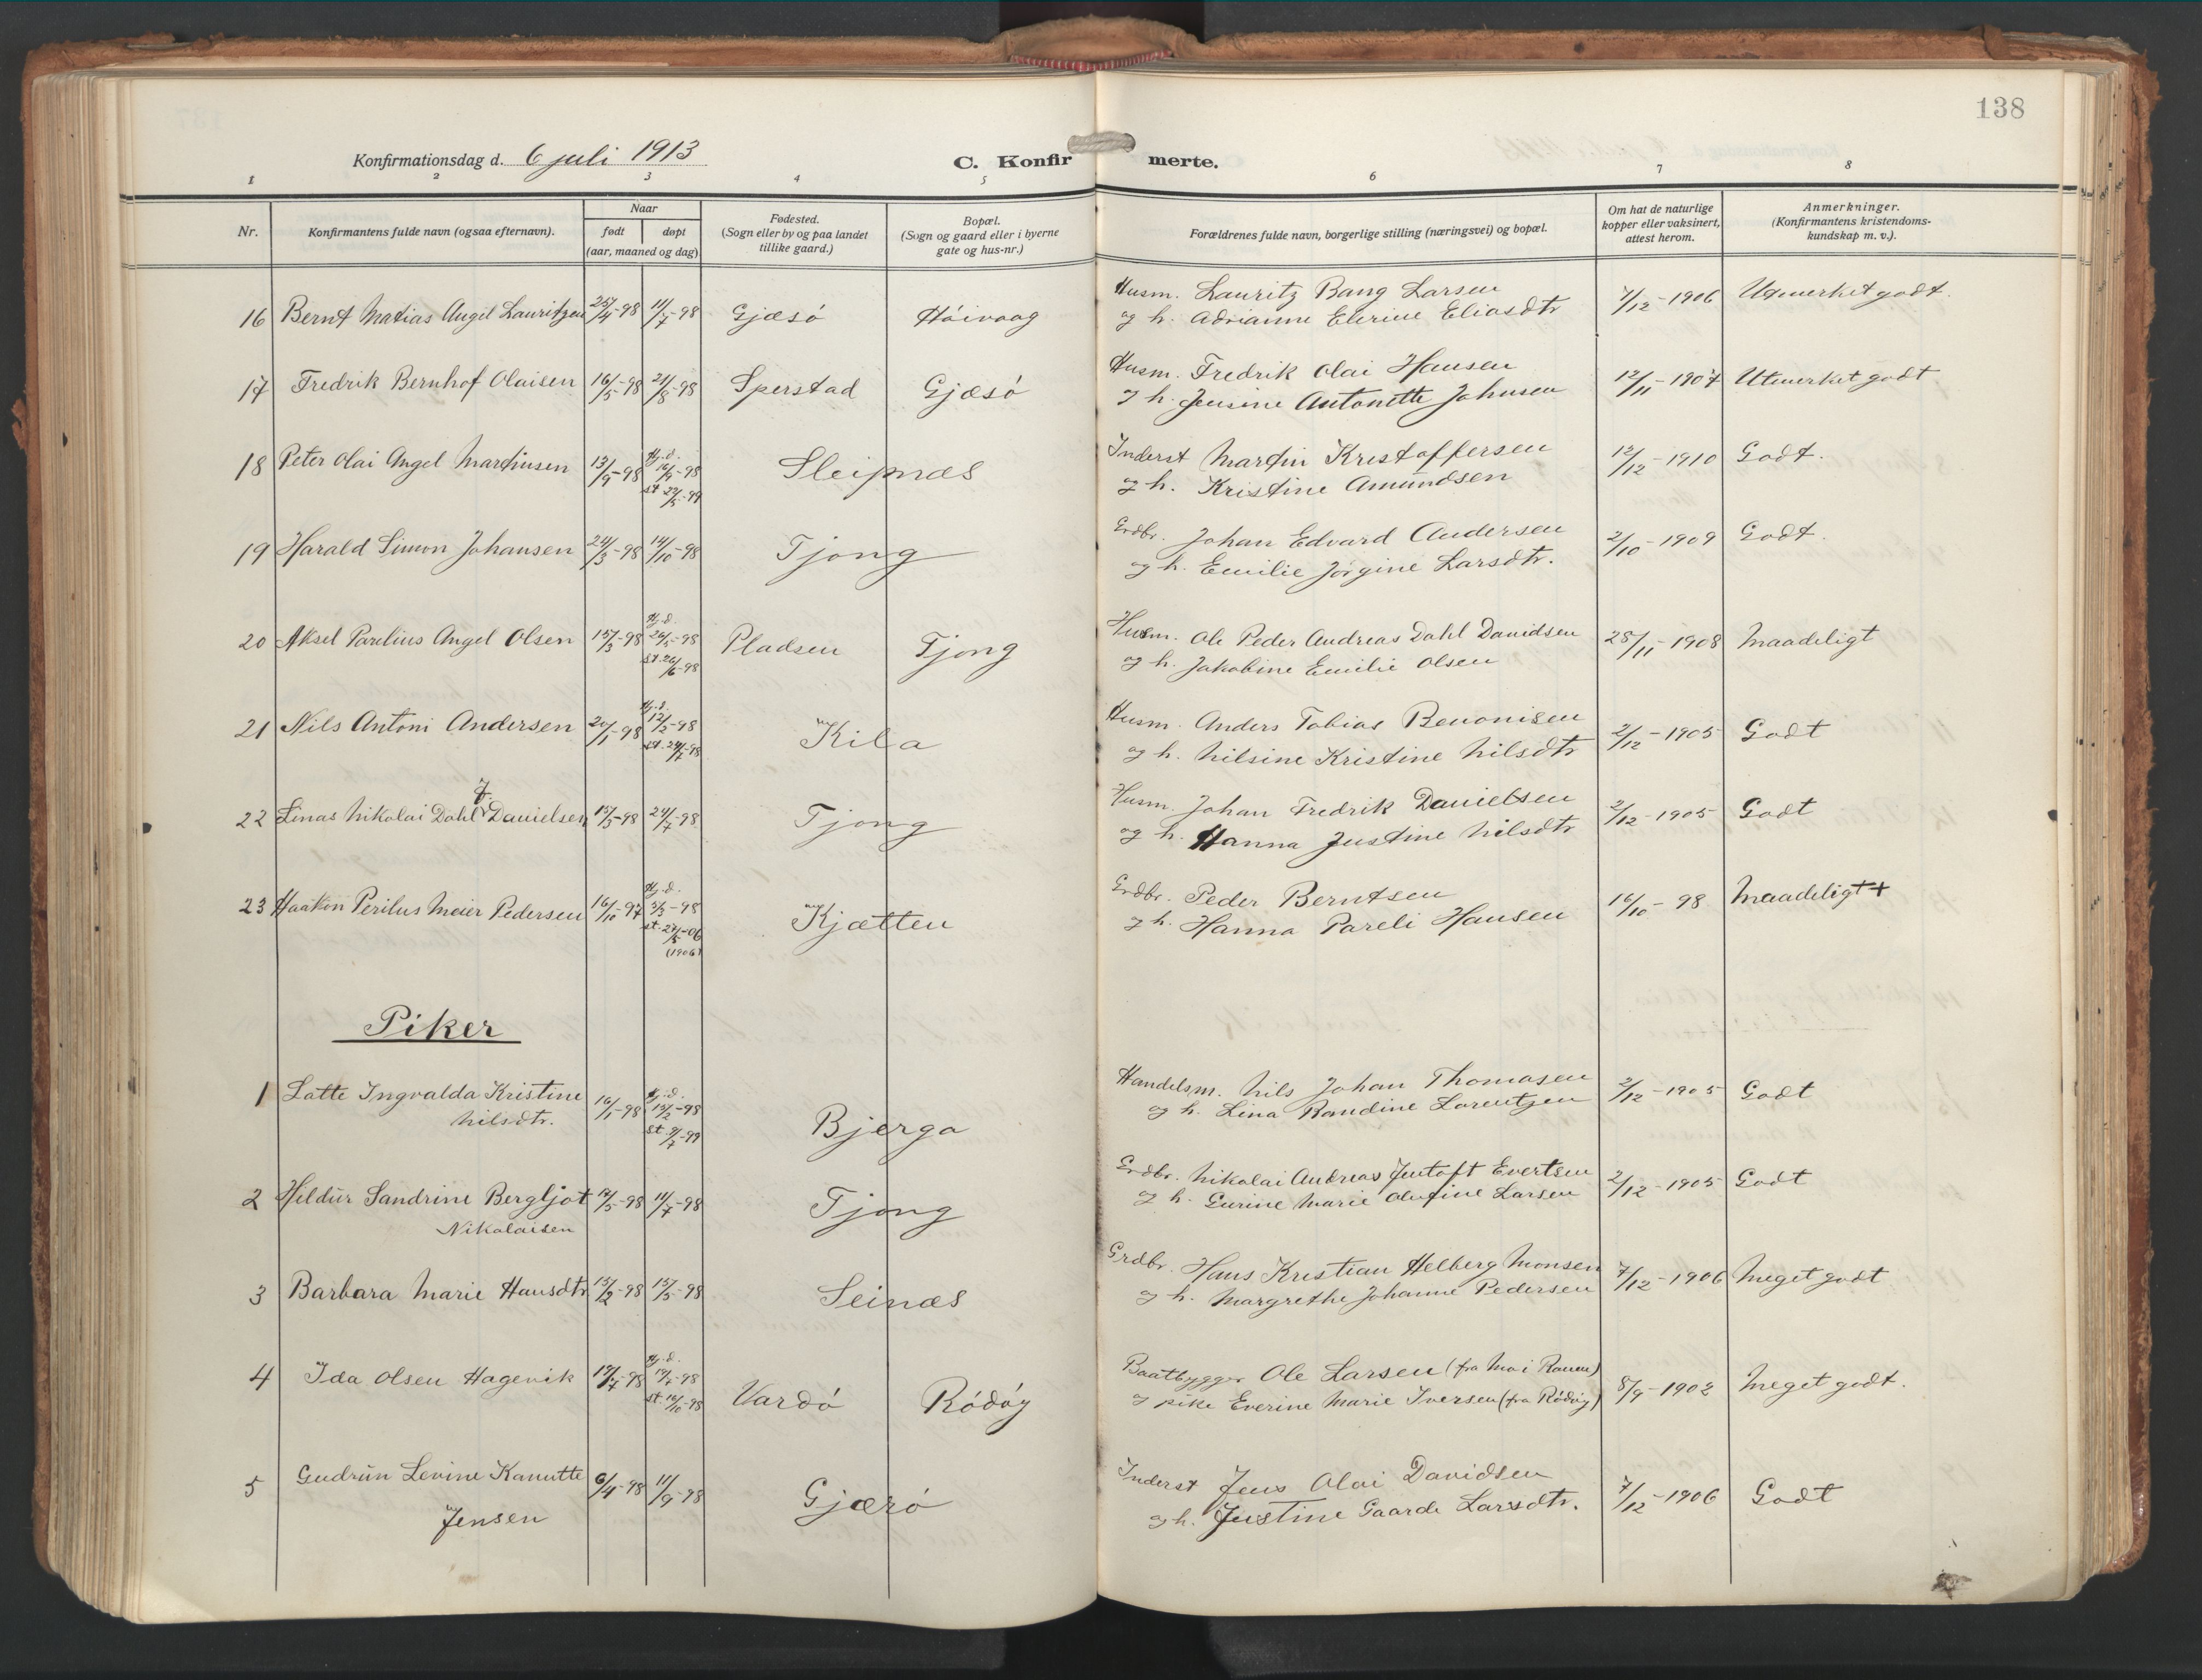 138
Konfirmationsdag d. 6 juli 1913
C. Konfir merte.
1 2 3 4 5 6 7 8
Nr.
Konfirmantens fulde navn (ogsaa efternavn).
Naar
født døpt
(aar, maaned og dag)
Fødested.
(Sogn eller by og paa landet
tillike gaard.)
Bopæl.
(Sogn og gaard eller i byerne
gate og hus-nr.)
Forældrenes fulde navn, borgerlige stilling (næringsvei) og bopæl.
Om hat de naturlige
kopper eller vaksinert,
attest herom.
Anmerkninger.
(Konfirmantens kristendoms-
kundskap m. v.).
16 Bernt Matias Angel Lauritzen 25/4-98 11/7-98 Gjæsö Höivaag
Husm. Lauritz Bang Larsen
og h. Adrianne Elerine Eliasdtr
7/12-1906 Utmerket godt.
17 Fredrik Bernhof Olaisen 16/5-98 21/8-98 Sperstad Gjæsö
Husm. Fredrik Olai Hansen
og h. Jensine Antonette Johnsen
12/11-1907 Utmerket godt
18 Peter Olai Angel Martinsen 13/9-98
Hj.d.
16/9-98
st 22/5-99
Sleipnæs
Inderst Martin Kristoffersen
og h. Kristine Amundsen
12/12-1910 Godt.
19 Harald Simon Johansen 24/3-98 14/10-98 Tjong
Grdbr. Johan Edvard Andersen
og h. Emilie Jörgine Larsdtr.
2/10-1909 Godt.
20 Aksel Parelius Angel Olsen 15/3-98
Hj.d.
24/5-98
st. 26/6-98
Pladsen Tjong
Husm. Ole Peder Andreas Dahl Davidsen
og h. Jakobine Emilie Olsen
28/11-1908 Maadeligt
21 Nils Antoni Andersen 20/1-98
Hj.d.
12/2-98
st. 24/7-98
Kila
Husm. Anders Tobias Benonisen
og h. Nilsine Kristine Nilsdtr
2/12-1905 Godt
22 Linas Nikolai Dahl J. Danielsen 15/3-98 24/7-98 Tjong
Husm. Johan Fredrik Danielsen
og h. Hanna Justine Nilsdtr
2/12-1905 Godt
23 Haakon Perilus Meier Pedersen 16/10-97
Hj.d.
3/3-98
st. 27/5-06
(1906)
Kjætten
Grdbr. Peder Berntsen
og h. Hanna Pareli Hansen
16/10-98 Maadeligt +
Piker
1 Lotte Ingvalda Kristine
Nilsdtr.
16/1-98
Hj.d.
15/2-98
st. 9/7-99
Bjerga
Handelsm. Nils Johan Thomasen
og h. Lina Randine Lorentzen
2/12-1905 Godt
2 Hildur Sandrine Bergljot
Nikolaisen
19/5-98 11/7-98 Tjong
Grdbr. Nikolai Andreas Jentoft Evertsen
og h. Gurine Marie Larsen
2/12-1905 Godt
3 Barbara Marie Hansdtr 15/2-98 15/5-98 Seinæs
Grdbr. Hans Kristian Helberg Monsen
og h. Margrethe Johanne Pedersen
7/12-1906 Meget godt
4 Ida Olsen Hagevik 17/7-98
Hj.d.
19/7-98
st. 16/10-98
Vardö Rödöy
Baatbygger Ole Larsen (fra Mo i Ranen)
og pike Everine Marie Iversen (fra Rödöy)
8/9-1902 Meget godt.
5 Gudrun Levine Kanutte
Jensen
6/4-98 11/9-98 Gjærö
Inderst Jens Olai Davidsen
og h. Justine Gaarde Larsdtr.
7/12-1906 Godt